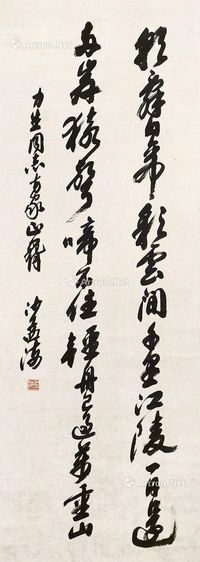 朝辞白帝彩云间千里江陵一日还
两岸猿声啼不住轻舟已过万重山
力生同志方家正腕 沙孟海